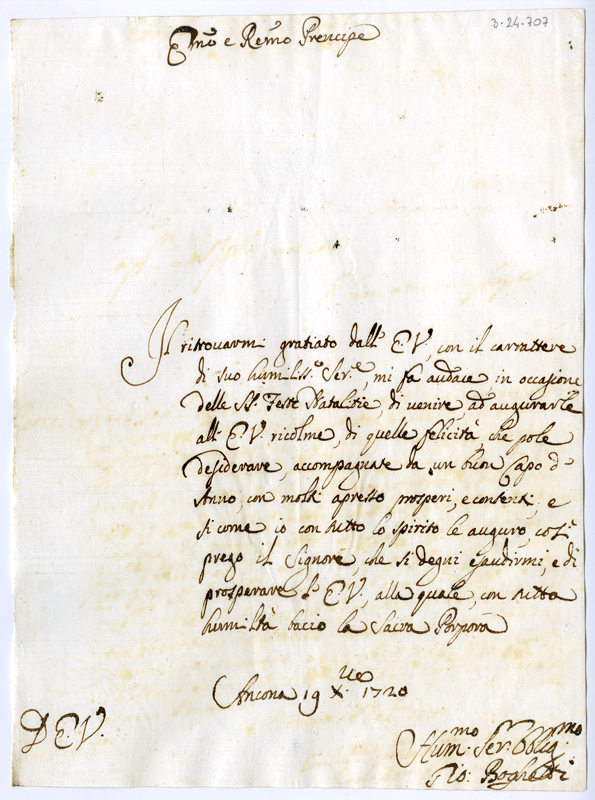 3-24-707
Emo e Remo Prencipe
Il ritrouarmi gratiato dall' E.V., con il carrattere
di suo humiliss.o Ser.e, mi fa audace in occasione
delle SS.e Feste Natalitie, di venire ad augurarle
all' E.V. ricolme, di quelle felicità che pole
desiderare, accompagnate da un buon Capo d'
Anno, con molti apresso prosperi, e contenti, e
si come io con tutto lo spirito le auguro, così
prego il Signore, che si degni esaudirmi, e di
prosperare l' E.V., alla quale, con tutta
humiltà bacio la Sacra Porpora
Ancona 19 Xbre 1720
D E V.
Hum.mo Ser. Oblig.mo
Gio: Boghetti